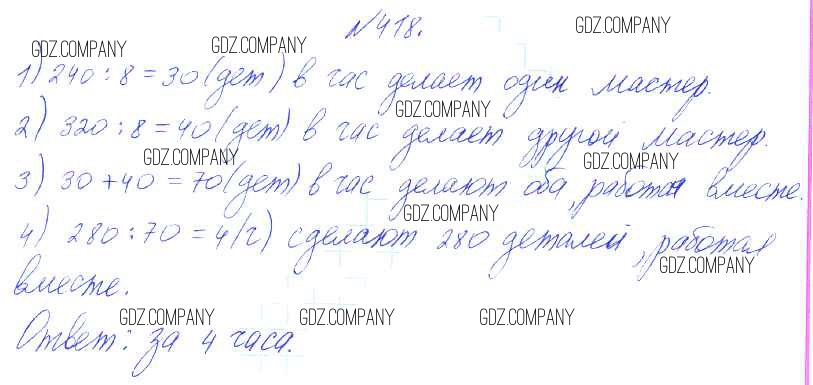 №418.
GDZ.COMPANY GDZ.COMPANY GDZ.COMPANY
1) 240 : 8 = 30 (дет) в час делает один мастер.
GDZ.COMPANY
2) 320 : 8 = 40 (дет) в час делает другой мастер.
GDZ.COMPANY GDZ.COMPANY
3) 30 + 40 = 70 (дет) в час делают оба, работая вместе.
GDZ.COMPANY
4) 280 : 70 = 4 (ч) сделают 280 деталей, работая
GDZ.COMPANY
вместе.
GDZ.COMPANY GDZ.COMPANY GDZ.COMPANY
Ответ: за 4 часа.